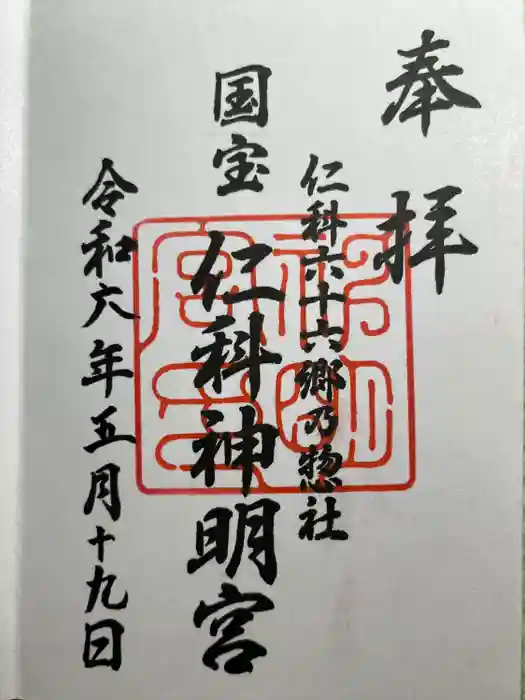 奉拝
仁科六十六郷乃惣社
国宝 仁科神明宮
令和六年五月十九日